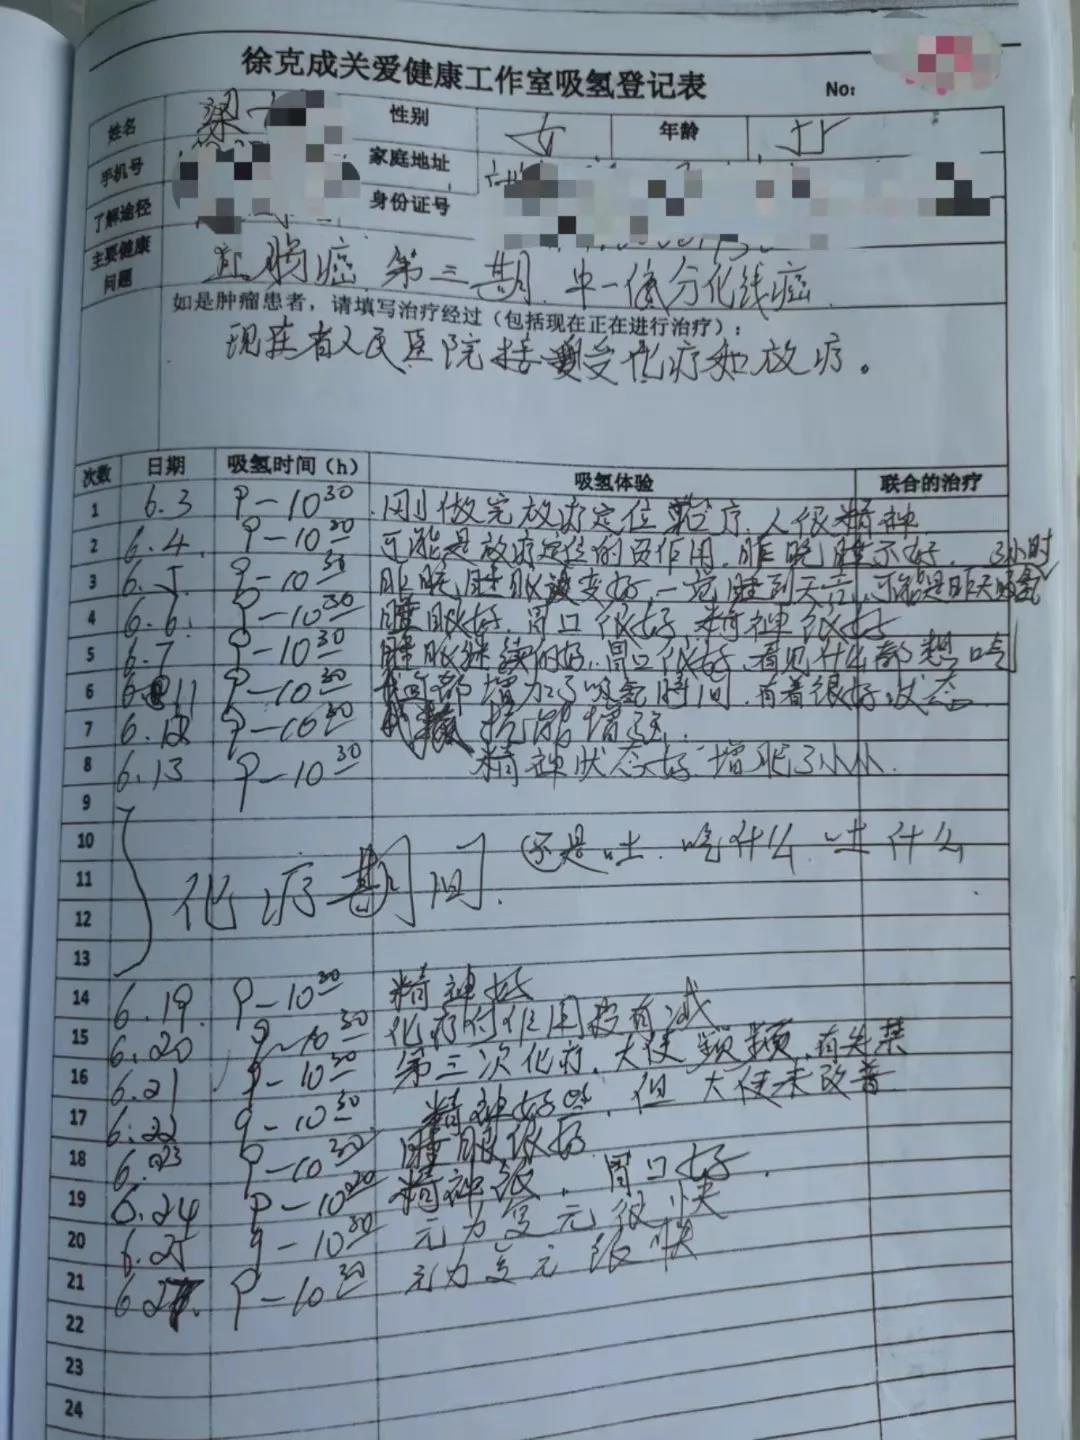 徐克成关爱健康工作室吸氢登记表 No:
姓名 梁 性别 女 年龄
手机号 家庭地址
了解途径 身份证号
主要健康问题 直肠癌 第三期. 中一低分化线癌.
如是肿瘤患者，请填写治疗经过（包括现在正在进行治疗）:
现在省人民医院接受化疗和放疗。
次数 日期 吸氢时间（h） 吸氢体验 联合的治疗
1 6.3 9-10 30 刚做完放疗定位 疗.人很精神
2 6.4. 9-10 30 可能是放疗定位的负作用.昨晚睡不好. 3小时
3 6.5 9-10 30 昨晚睡眠 变好,一觉睡到天亮,可能是昨天吸氢
4 6.6. 9-10 30 睡眠好.胃口很好 精神很好
5 6.7 9-10 30 睡眠继续的好.胃口很好.看见什么都想吃
6 6. 11 9-10 30 增加了吸氢时间.有着很好状态
7 6.12 9-10 30 抗能增强.
8 6.13 9-10 30 精神状态好.增肥了小小.
9
10
11 化疗期间. 还是吐.吃什么.吐什么
12
13
14 6.19. 9-10 30 精神好
15 6.20 9-10 30 化疗付作用 有减
16 6.21 9-10 30 第三次化疗.大便频频.有失禁
17 6.22 9-10 30 精神好些.但大便未改善
18 6.23 9-10 30 睡眠很好
19 6.24 9-10 30 精神 ,胃口好.
20 6.25 9-10 30 元力复元很快
21 6.2 9-10 30 元力复元 快
22
23
24